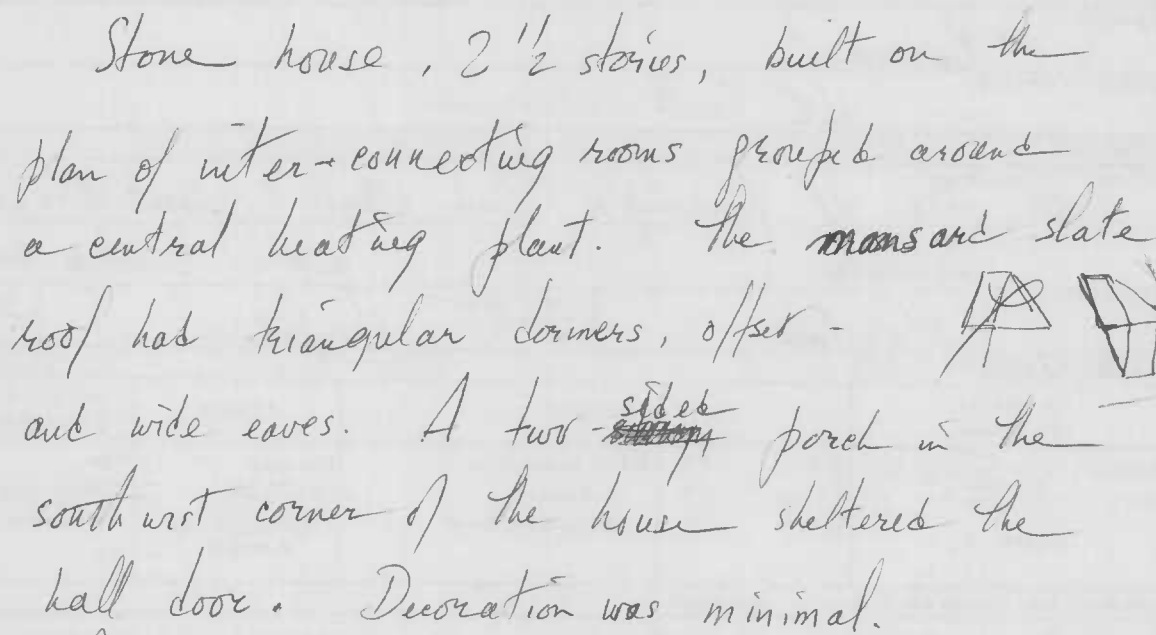 Stone house, 2 1/2 stories, built on the
plan of inter-connecting rooms grouped around
a central heating plant. The mansard slate
roof had triangular dormers, offset -
and wide eaves. A two-sided porch in the
southwest corner of the house sheltered the
hall door. Decoration was minimal.